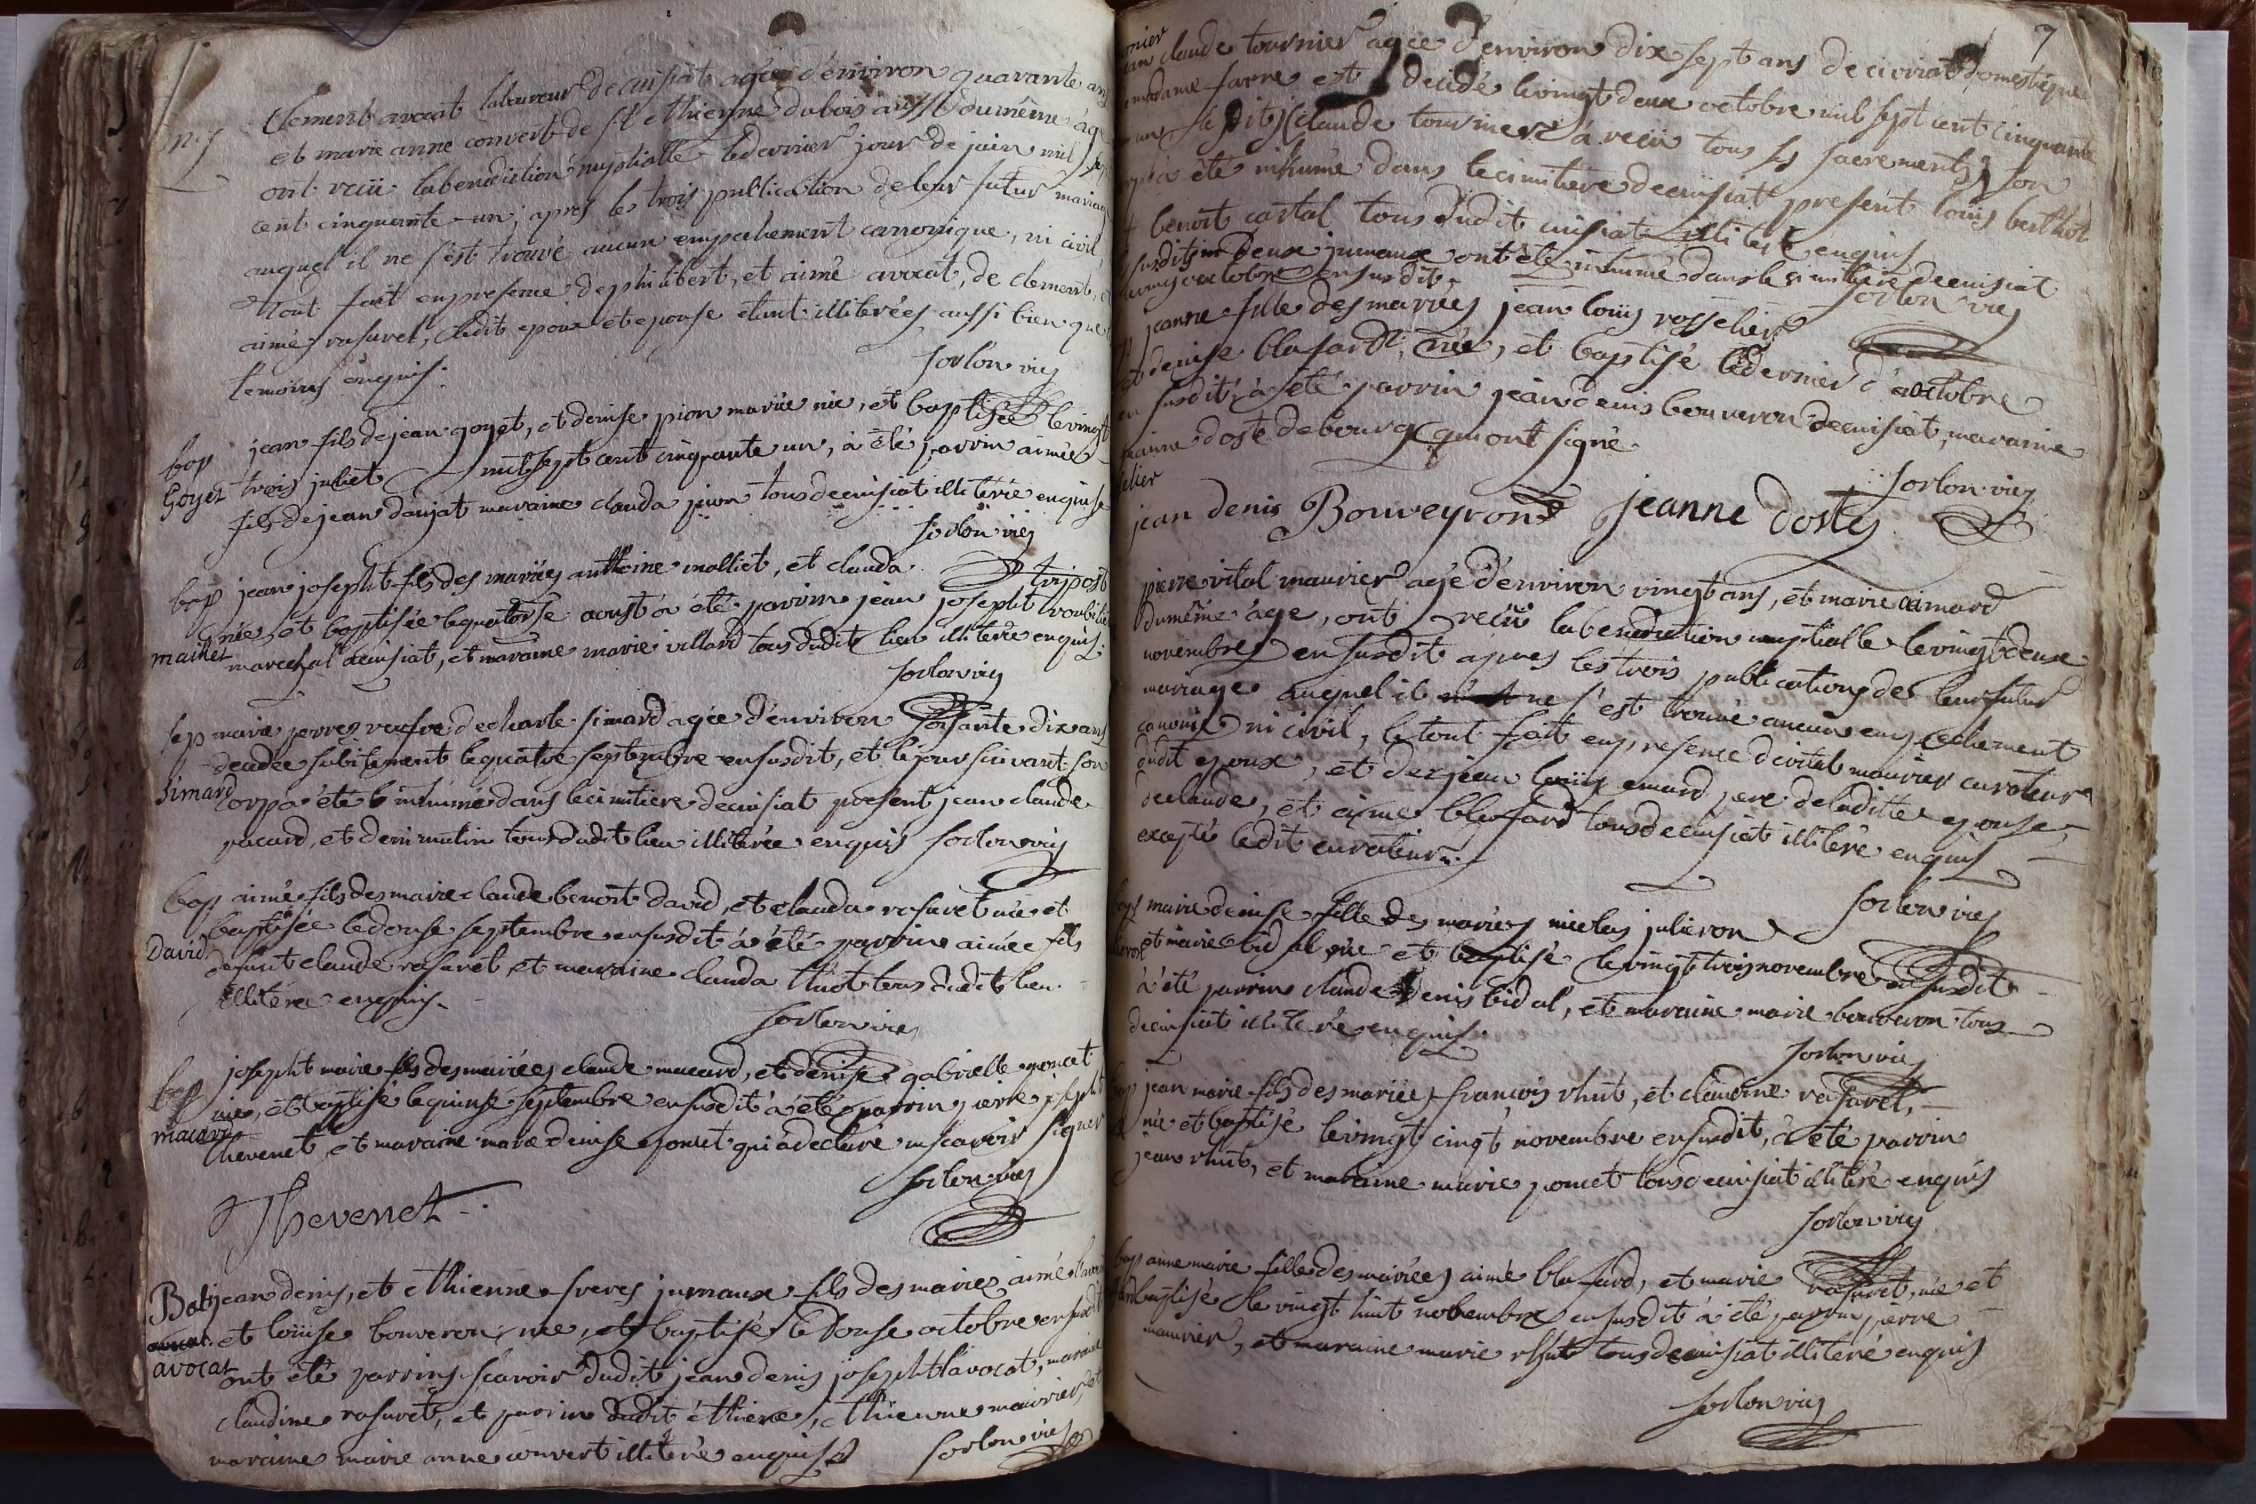 m.g clement avocat laboureur de cuisiat agée d'environ quarante ans
et marie anne convert de st ethienne du bois aussi du même age
ont reçu la benediction nuptialle le dernier jour de juin mil sept
cent cinquante-un; apres les trois publication de leur futur mariage
auquel il ne s'est trouvé aucun empechement cannonique, ni civil
tout fait en presence de philibert, et aimé avocat, de clement, et
aimé rasuret, ledit epoux et epouse etant illiterées aussi bien que
temoins enquis.
sorlon vic
bap jean fils de jean goyet, et denise pion mariée née, et baptisée le vingt
Goyet trois juliet mil sept cent cinquante un, à été parrin aimée
fils de jean danjat maraine clauda pion tous de cuisiat illiterée enquise
sorlon vic
bap jean josepht fils des mariées anthoine malliet, et clauda tripost
née, et baptisée le quatorse aoust à été parrin jean josepht
mailliet marechal de cuisiat, et maraine marie villard tous dudit lieu illiterée enquis.
sorlon vic
sep marie perret veufve de charle simard agée d'environ soisante dix ans
decedée subitement le quatre septembre en susdit, et le jour suivant son
simard corp a été inhumé dans le cimitiere de cuisiat present jean claude
pacard, et deni mutin tous dudit lieu illiterée enquis sorlon vic
bap aimé fils des marie claude benoit david, et clauda rasuret née et
baptisée le douse septembre en susdit à été parrin aimée fils
David defunt claude rasuret, et maraine clauda thuot tous dudit lieu
illitére enquis.
sorlon vic
bap josepht marie fils des mariées claude macard, et denise gabrielle poncet
née, et baptisé le quinse septembre en susdit à été parrin pierre josepht
macard thevenet, et maraine marie denise poncet qui a declaré ne scavoir signer
sorlon vic
Thevenet
Bap jean denis, et ethienne freres jumaux fils des mariez aimé l'avocat
et loüise bouveron, née, et baptisé le douse octobre en susdit
avocat ont été parrins scavoir dudit jean denis josepht l'avocat, maraine
claudine rasuret, et parrin dudit éthiene, ethienne maurier, et
maraine marie anne convert illiteré enquis sorlon vic
7
jean claude tournier agée d'environ dix sept ans de civriat domestique
madame farre est decedé le vingt deux octobre mil sept cent cinquante
un le dit claude tournier à reçu tous les sacrements, son
corp à été inhumé dans le cimitiere de cuisiat present louis berthod
et benoit cartal tous dudit cuisiat illiteré enquis
susdits deux jumaux ont été inhumé dans le cimitiere de cuisiat
octobre en susdit.
sorlon vic
jeanne fille des mariées jean louis rosselier
et denise blafard, née, et baptisé le dernier d'octobre
en susdit, à été parrin jean denis bouveron de cuisiat, maraine
jeanne doste de bourg qui ont signé
sorlon vic
jean denis Bouveyron Jeanne dostes
pierre vital maurier agé d'environ vingt ans, et marie aimard
du même age, ont reçu la benediction nuptialle le vingt deux
novembre en susdit apres les trois publications de leur futur
mariage auquel il ne s'est trouvé aucun empechement
canonix ni civil, le tout fait en presence de vital maurier curateur
dudit epoux, et de jean louis emard pere de laditte epouse,
de claude, et aimé blafard tous de cuisiat illiteré enquis
excepté ledit curateur.
sorlon vic
bap marie denise fille des mariées nicolas julieron
et marie bidal née et baptisé le vingt trois novembre en susdit
à été parrin claude denis bidal, et maraine marie bouveron tous
de cuisiat illiterée enquis.
sorlon vic
bap jean marie fils des mariées françois thut, et claudine rasuret,
née et baptisé le vingt cinq novembre en susdit, à été parrin
jean thut, et maraine marie poncet tous de cuisiat illiteré enquis
sorlon vic
bap anne marie fille des mariées aimé blafard, et marie rasuret, née et
baptisé le vingt huit novembre en susdit à été parrin pierre
maurier, et maraine marie thut tous de cuisiat illiterée enquis
sorlon vic